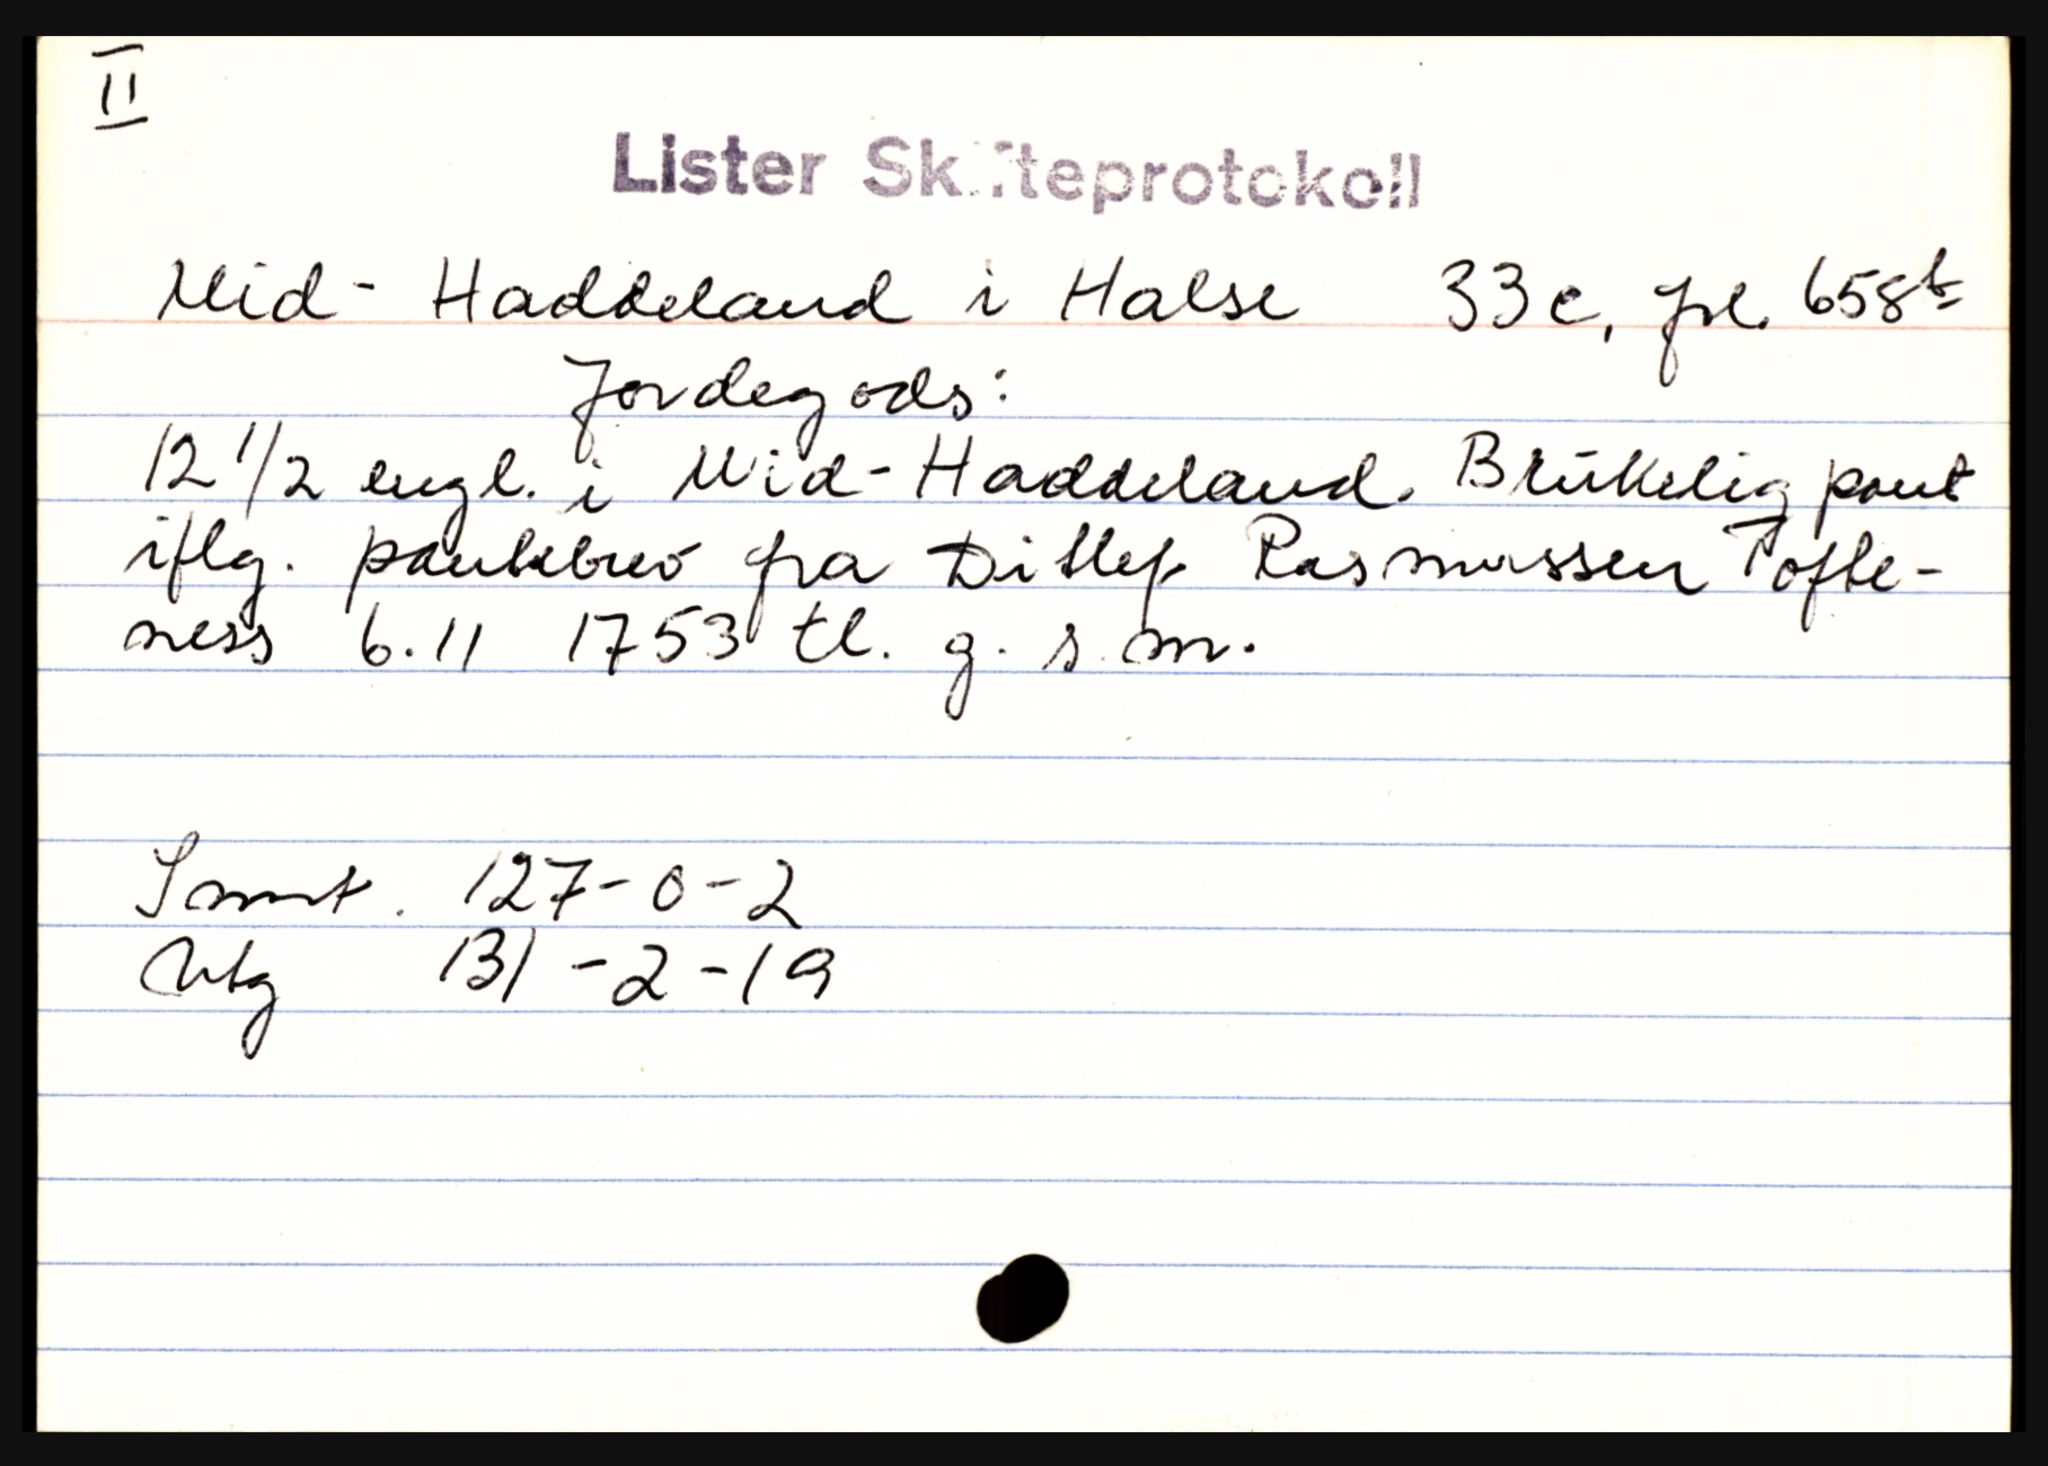 II
Lister Skifteprotokoll
Mid- Haddeland i Halse 33c, fol. 658b
Jordegods:
12 1/2 engl. i Mid-Haddeland. Brükelig pant
iflg. pantebrev fra Ditlef Rasmussen Tofte-
ness 6.11 1753 tl. g. s. m.
Innt. 127-0-2
Utg 131-2-19